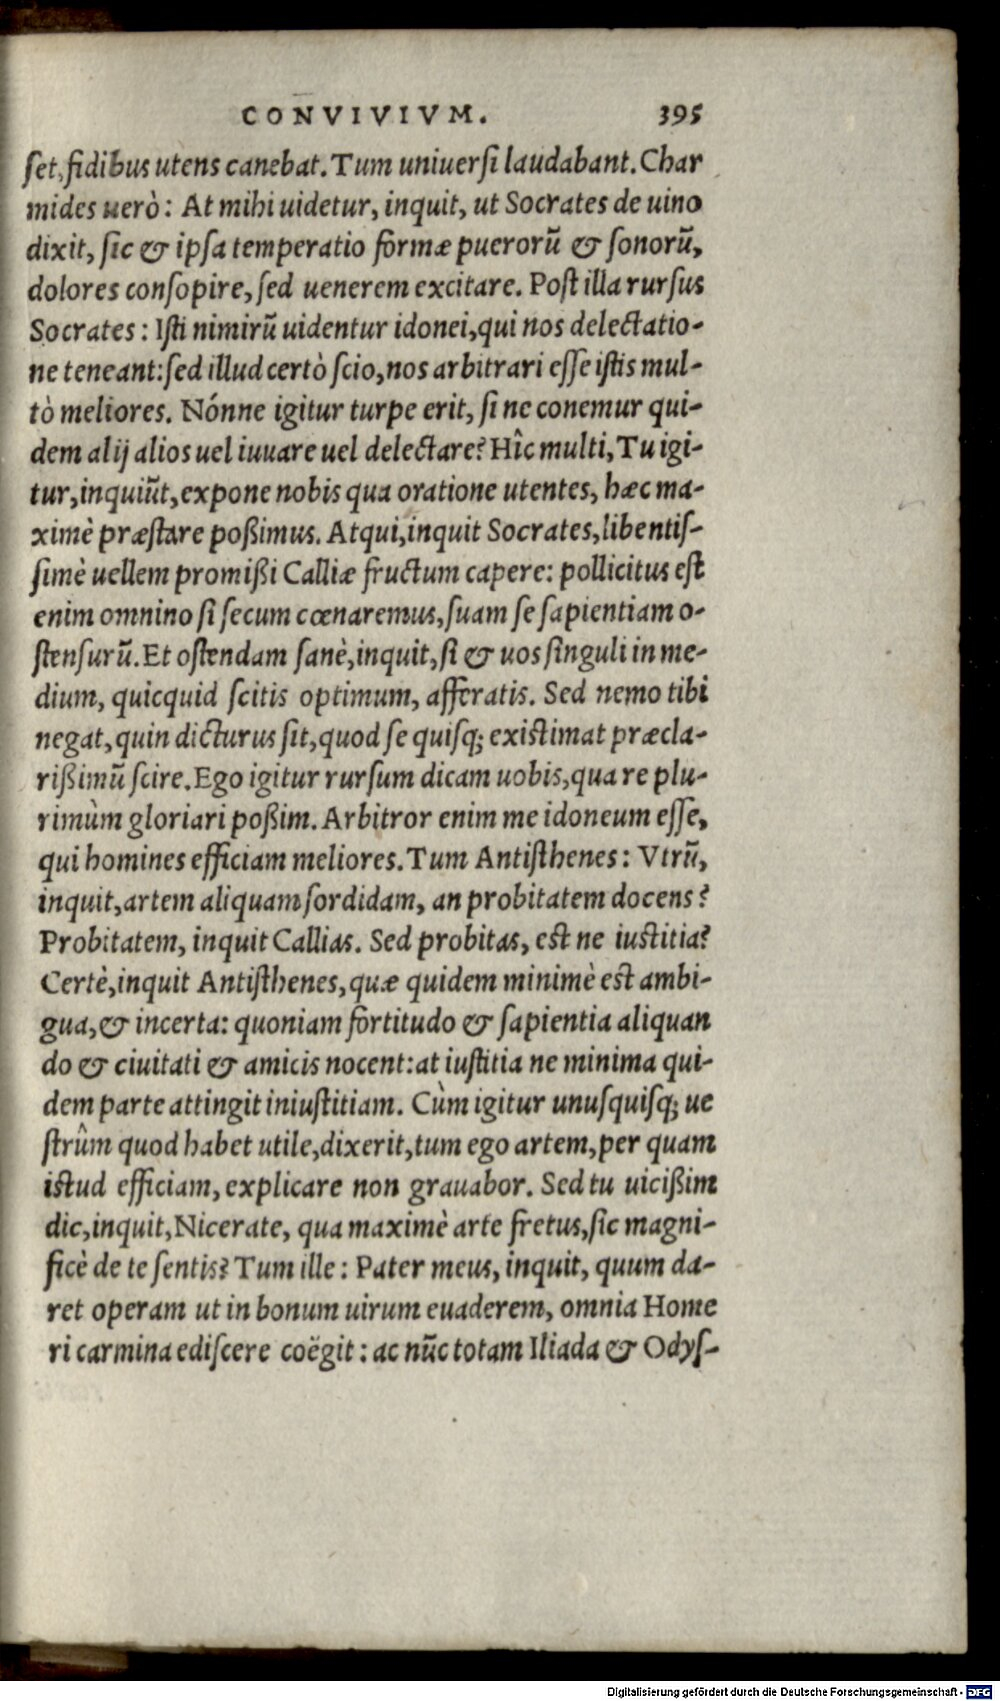 CONVIVIVM. 395
ſet, fidibus utens canebat. Tum uniuerſi laudabant. Char
mides uerò: At mihi uidetur, inquit, ut Socrates de uino
dixit, ſic & ipſa temperatio formæ puerorū & ſonorū,
dolores conſopire, ſed uenerem excitare. Poſt illa rurſus
Socrates: Iſti nimirū uidentur idonei, qui nos delectatio-
ne teneant: ſed illud certò ſcio, nos arbitrari eſſe iſtis mul-
tò meliores. Nónne igitur turpe erit, ſi ne conemur qui-
dem alij alios uel iuuare uel delectare? Hîc multi, Tu igi-
tur, inquiūt, expone nobis qua oratione utentes, hæc ma-
ximè præſtare poßimus. Atqui, inquit Socrates, libentiſ-
ſimè uellem promißi Calliæ fructum capere: pollicitus eſt
enim omnino ſi ſecum cœnaremus, ſuam ſe ſapientiam o-
ſtenſurū. Et oſtendam ſanè, inquit, ſi & uos ſinguli in me-
dium, quicquid ſcitis optimum, afferatis. Sed nemo tibi
negat, quin dicturus ſit, quod ſe quiſq; existimat præcla-
rißimū ſcire. Ego igitur rurſum dicam uobis, qua re plu-
rimùm gloriari poßim. Arbitror enim me idoneum eſſe,
qui homines efficiam meliores. Tum Antiſthenes: Vtrū,
inquit, artem aliquam ſordidam, an probitatem docens?
Probitatem, inquit Callias. Sed probitas, est ne iustitia?
Certè, inquit Antiſthenes, quæ quidem minimè est ambi-
gua, & incerta: quoniam fortitudo & ſapientia aliquan
do & ciuitati & amicis nocent: at iuſtitia ne minima qui-
dem parte attingit iniuſtitiam. Cùm igitur unuſquiſq; ue
ſtrûm quod habet utile, dixerit, tum ego artem, per quam
istud efficiam, explicare non grauabor. Sed tu uicißim
dic, inquit, Nicerate, qua maximè arte fretus, ſic magni-
ficè de te ſentis? Tum ille: Pater meus, inquit, quum da-
ret operam ut in bonum uirum euaderem, omnia Home
ri carmina ediſcere coëgit: ac nūc totam Iliada & Odyſ-
Digitalisierung gefördert durch die Deutsche Forschungsgemeinschaft - DFG